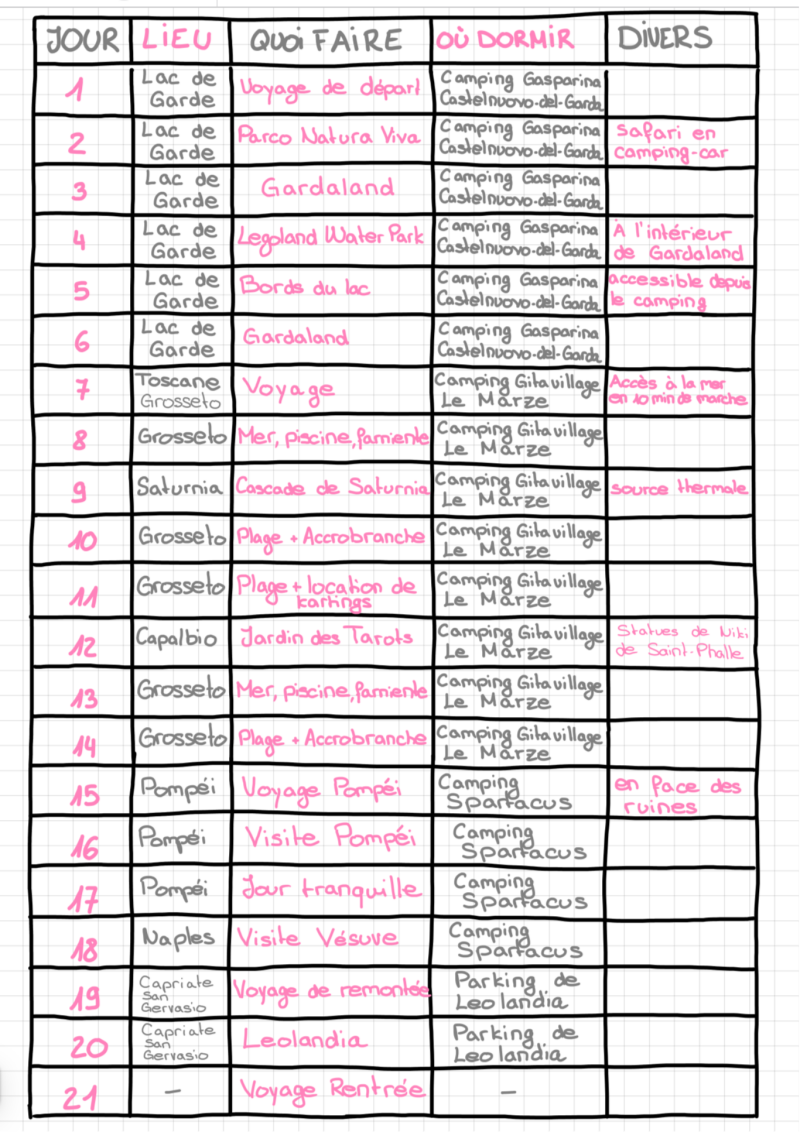 JOUR LIEU QUOI FAIRE OÙ DORMIR DIVERS
1 Lac de Garde Voyage de départ Camping Gasparina Castelnuovo-del-Garda
2 Lac de Garde Parco Natura Viva Camping Gasparina Castelnuovo-del-Garda Safari en camping-car
3 Lac de Garde Gardaland Camping Gasparina Castelnuovo-del-Garda
4 Lac de Garde Legoland Water Park Camping Gasparina Castelnuovo-del-Garda À l'intérieur de Gardaland
5 Lac de Garde Bords du lac Camping Gasparina Castelnuovo-del-Garda accessible depuis le camping
6 Lac de Garde Gardaland Camping Gasparina Castelnuovo-del-Garda
7 Toscane Grosseto Voyage Camping Gitavillage Le Marze Accès à la mer en 10 min de marche
8 Grosseto Mer, piscine, farniente Camping Gitavillage Le Marze
9 Saturnia Cascade de Saturnia Camping Gitavillage Le Marze source thermale
10 Grosseto Plage + Accrobranche Camping Gitavillage Le Marze
11 Grosseto Plage + location de kartings Camping Gitavillage Le Marze
12 Capalbio Jardin des Tarots Camping Gitavillage Le Marze Statues de Niki de Saint-Phalle
13 Grosseto Mer, piscine, farniente Camping Gitavillage Le Marze
14 Grosseto Plage + Accrobranche Camping Gitavillage Le Marze
15 Pompéi Voyage Pompéi Camping Spartacus en face des ruines
16 Pompéi Visite Pompéi Camping Spartacus
17 Pompéi Jour tranquille Camping Spartacus
18 Naples Visite Vésuve Camping Spartacus
19 Capriate San Gervasio Voyage de remontée Parking de Leolandia
20 Capriate San Gervasio Leolandia Parking de Leolandia
21 – Voyage Rentrée –